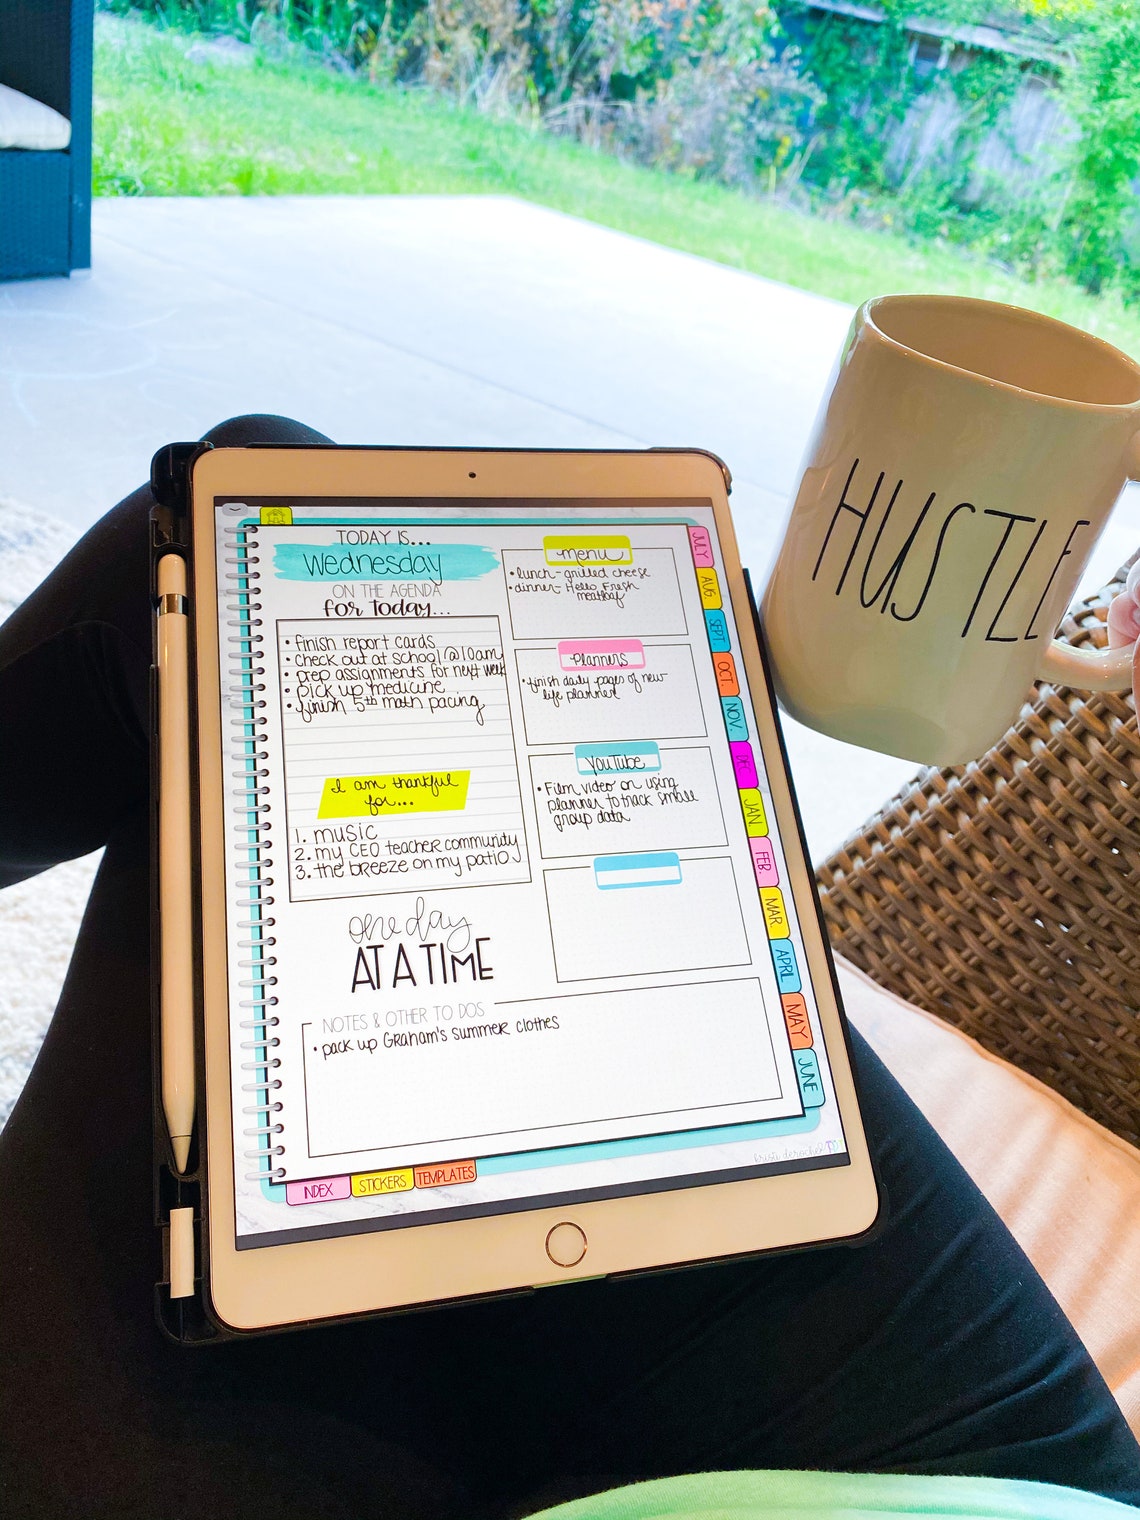 TODAY IS...
Wednesday
ON THE AGENDA
for today...
• finish report cards
• check out at school @10am
• prep assignments for next week
• pick up medicine
• finish 5th math pacing
I am thankful
for...
1. music
2. my CEO teacher community
3. the breeze on my patio
one day
AT A TIME
menu
• lunch - grilled cheese
• dinner - Hello Fresh
meatloaf
Planners
• finish daily pages of new
life planner
YouTube
• Film video on using
planner to track small
group data
NOTES & OTHER TO DOS
• pack up Graham's summer clothes
JULY
AUG
SEPT
OCT.
NOV.
DEC
JAN
FEB.
MAR
APRIL
MAY
JUNE
INDEX
STICKERS
TEMPLATES
HUSTLE